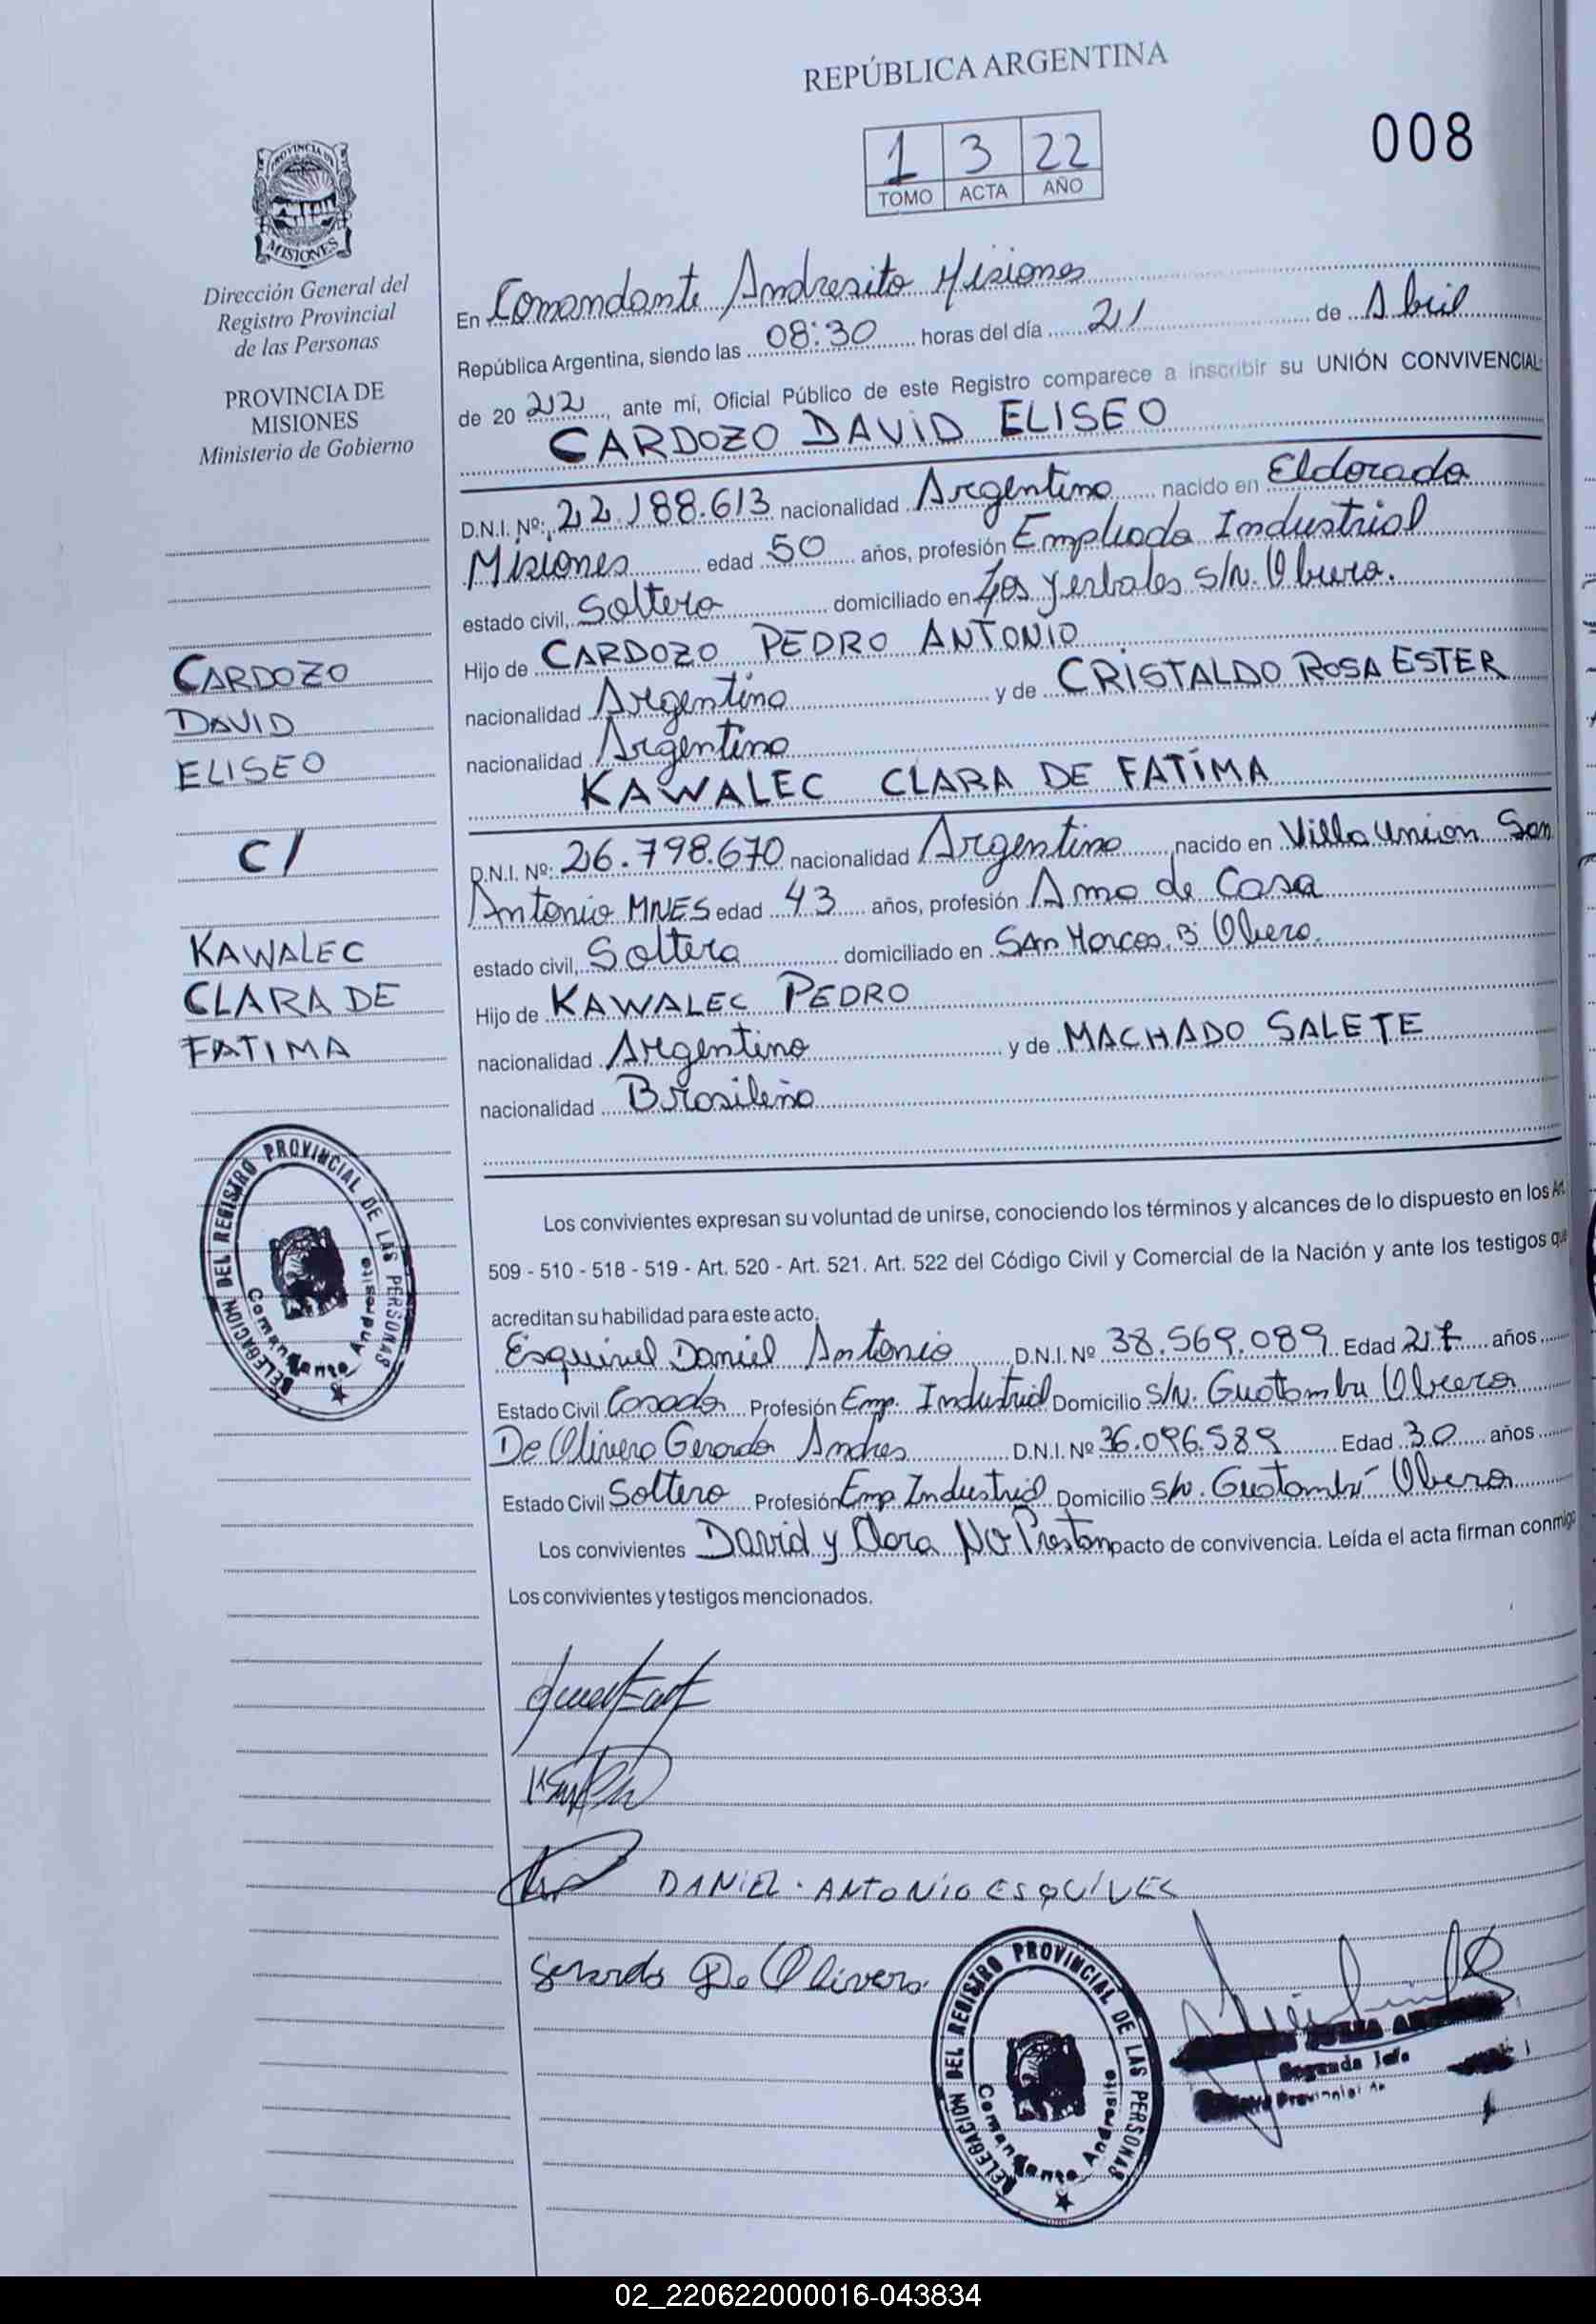 REPÚBLICA ARGENTINA
1 3 22
TOMO ACTA AÑO
008
PROVINCIA DE
MISIONES
Dirección General del
Registro Provincial
de las Personas
PROVINCIA DE
MISIONES
Ministerio de Gobierno
CARDOZO
DAVID
ELISEO
C/
KAWALEC
CLARA DE
FATIMA
DELEGACION DEL REGISTRO PROVINCIAL DE LAS PERSONAS
Comandante Andresito
En Comandante Andresito Misiones
República Argentina, siendo las 08:30 horas del día 21 de Abril
de 20 22, ante mí, Oficial Público de este Registro comparece a inscribir su UNIÓN CONVIVENCIAL:
CARDOZO DAVID ELISEO
D.N.I. Nº: 22.188.613 nacionalidad Argentino nacido en Eldorado
Misiones edad 50 años, profesión Empleado Industrial
estado civil, Soltero domiciliado en Los Yerbales s/N. Obrero.
Hijo de CARDOZO PEDRO ANTONIO
nacionalidad Argentino y de CRISTALDO ROSA ESTER
nacionalidad Argentina
KAWALEC CLARA DE FATIMA
D.N.I. Nº: 26.798.670 nacionalidad Argentina nacido en Villa Union San
Antonio MNES edad 43 años, profesión Ama de Casa
estado civil, Soltera domiciliado en SAn Marcos. B° Obrero.
Hijo de KAWALEC PEDRO
nacionalidad Argentino y de MACHADO SALETE
nacionalidad Brasileña
Los convivientes expresan su voluntad de unirse, conociendo los términos y alcances de lo dispuesto en los Art.
509 - 510 - 518 - 519 - Art. 520 - Art. 521. Art. 522 del Código Civil y Comercial de la Nación y ante los testigos que
acreditan su habilidad para este acto.
Esquivel Daniel Antonio D.N.I. Nº 38.569.089 Edad 27 años
Estado Civil Casado Profesión Emp. Industrial Domicilio S/N. Guatambu Obrero
De Olivera Gerardo Andres D.N.I. Nº 36.096.589 Edad 30 años
Estado Civil Soltero Profesión Emp Industrial Domicilio S/N. Guatambú Obrero
Los convivientes David y Clara NO Prestan pacto de convivencia. Leída el acta firman conmigo
Los convivientes y testigos mencionados.
DANIEL ANTONIO ESQUIVEL
Gerardo De Olivera
DELEGACION DEL REGISTRO PROVINCIAL DE LAS PERSONAS
Comandante Andresito
Segunda Jefa
Provincial
02_220622000016-043834